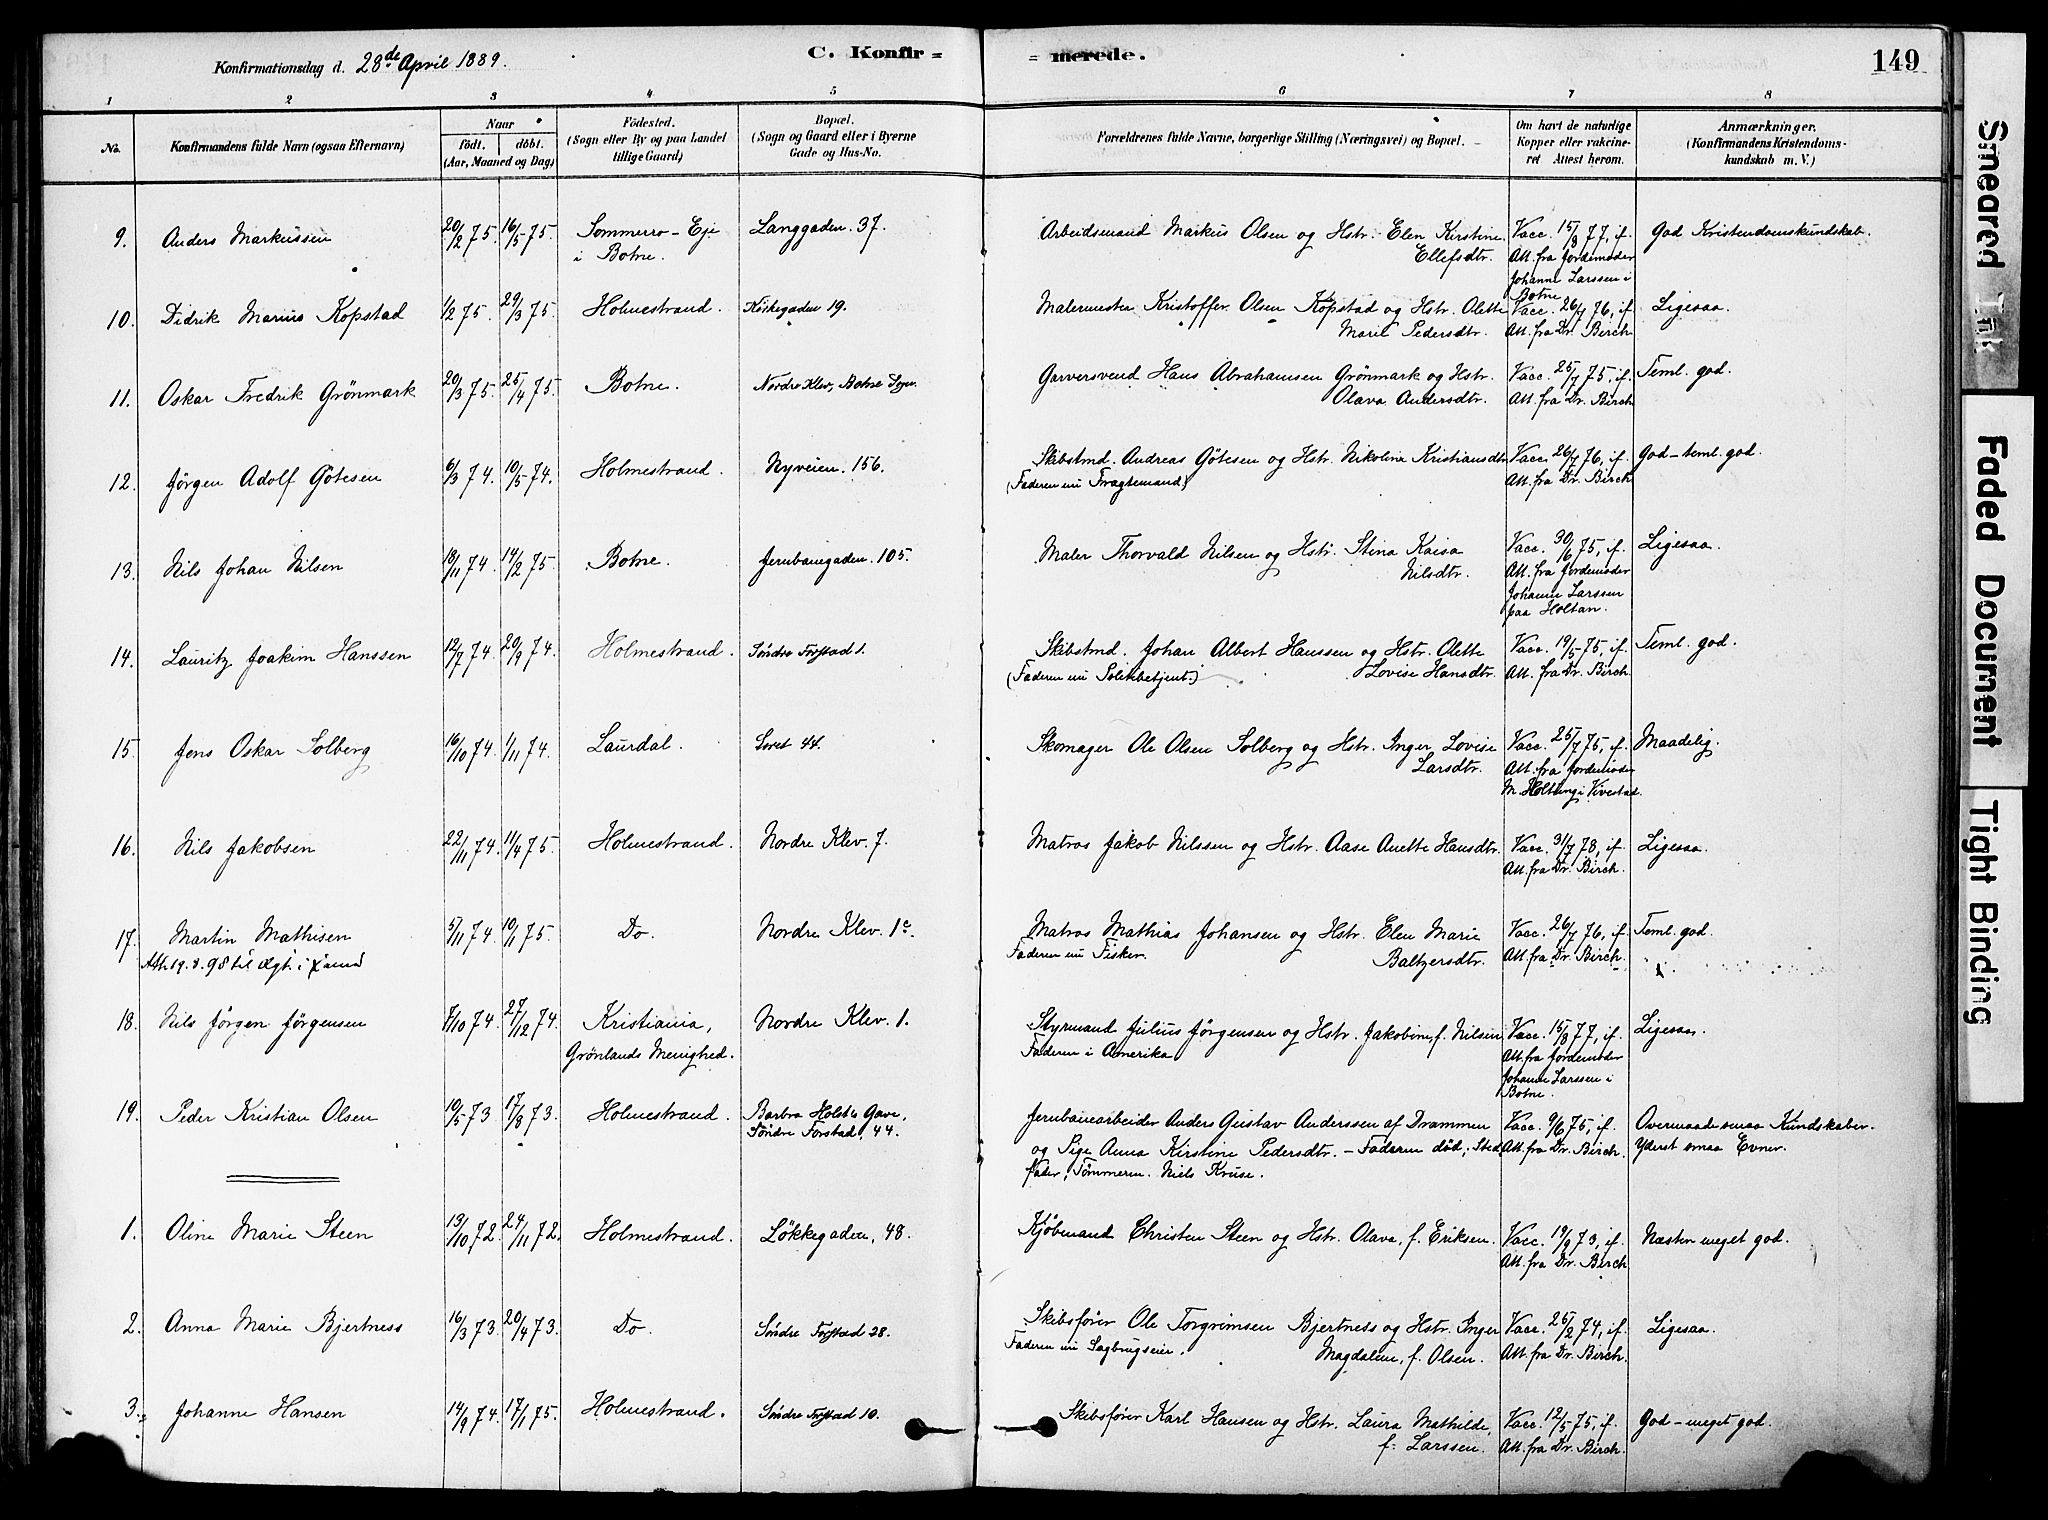 Konfirmationsdag d. 28de April 1889.
C. Konfir =
= merede.
149
1 2 3 4 5 6 7 8
No.
Konfirmandens fulde Navn (ogsaa Efternavn)
Naar
født. døbt.
(Aar, Maaned og Dag)
Fødested.
(Sogn eller By og paa Landet
tillige Gaard)
Bopæl.
(Sogn og Gaard eller i Byerne
Gade og Hus-No.
Forældrenes fulde Navne, borgerlige Stilling (Næringsvei) og Bopæl.
Om havt de naturlige
Kopper eller vakcine-
ret Attest herom.
Anmærkninger.
(Konfirmandens Kristendoms-
kundskab m. V.)
9. Anders Markussen 20/2 75. 16/5 75. Sommerro - Eje Langgaden. 37. Arbeidsmand Markus Olsen og Hstr. Elen Kirstine Vacc. 15/8 77, if. God Kristendomskundskab.
i Botne. Ellefsdtr. Att. fra Jordemoder
Johanne Larssen i
Botne
10. Didrik Marius Kopstad 1/2 75. 29/3 75. Holmestrand. Kirkegaden 19. Malermester Kristoffer Olsen Kopstad og Hstr. Olette Vacc. 26/7 76, if. Ligesaa.
Marie Pedersdtr. Att. fra Dr. Birch
11. Oskar Fredrik Grönmark 20/3 75. 25/4 75. Botne. Nordre Klev, Botne Sogn. Garversvend Hans Abrahamsen Grönmark og Hstr. Vacc. 25/7 75, if. Teml. god.
Olava Andersdtr. Att. fra Dr. Birch
12. Jørgen Adolf Götesen 6/3 74. 10/5 74. Holmestrand. Nyveien. 156. Skibstmd. Andreas Götesen og Hstr. Nikoline Kristiansdtr Vacc. 26/7 76, if. God - teml. god.
(Faderen nu Fragtemand) Att. fra Dr. Birch
13. Nils Johan Nilsen 18/11 74. 14/2 75 Botne. Jernbanegaden. 105. Maler Thorvald Nilsen og Hstr. Stina Kaisa Vacc. 30/6 75, if. Ligesaa.
Nilsdtr. Att. fra Jordemoder
Johanne Larssen
paa Holtan.
14. Lauritz Joakim Hanssen 12/7 74. 20/9 74. Holmestrand. Söndre Forstad 1. Skibstmd. Johan Albert Hanssen og Hstr. Olette Vacc. 19/5 75, if. Teml. god.
(Faderen nu Politibetjent.) Lovise Hansdtr. Att. fra Dr. Birch.
15 Jens Oskar Solberg 16/10 74. 1/11 74. Laurdal. Torvet 44. Skomager Ole Olsen Solberg og Hstr. Inger Lovise Vacc. 25/7 75, if. Maadelig.
Larsdtr. Att. fra Jordemoder
M. Holtung i Kvestad.
16. Nils Jakobsen 22/11 74. 11/4 75. Holmestrand. Nordre Klev. 7. Matros Jakob Nilssen og Hstr. Aase Anette Hansdtr. Vacc. 31/7 78, if. Ligesaa.
Att. fra Dr. Birch.
17. Martin Mathisen 5/11 74. 10/1 75. Do. Nordre Klev. 1c. Matros Mathias Johansen og Hstr. Elen Marie Vacc. 26/7 76, if. Teml. god.
Att. 19.8.98 til Ægt. i Xania Faderen nu Fisker. Baltzersdtr. Att. fra Dr. Birch.
18. Nils Jörgen Jörgensen 7/10 74. 27/12 74. Kristiania, Nordre Klev. 1. Styrmand Julius Jörgensen og Hstr. Jakobine, f. Nilsen Vacc. 15/8 77, if. Ligesaa.
Grönlands Menighed. Faderen i Amerika Att. fra Jordemoder
Johanne Larssen i
Botne.
19. Peder Kristian Olsen 10/5 73 17/8 73. Holmestrand. Barbra Holsts Gave, Jernbanearbeider Anders Gustav Anderssen af Drammen Vacc. 9/6 75, if. Overmaade smaa Kundskaber.
Söndre Forstad, 44. og Pige Anna Kirstine Pedersdtr. - Faderen död; Sted Att. fra Dr. Birch. Yderst smaa Evner.
fader, Tömmerm. Niels Kruse.
1. Oline Marie Steen 13/10 72. 24/11 72. Holmestrand. Lökkegaden, 48. Kjöbmand Christen Steen og Hstr. Olava, f. Eriksen. Vacc. 19/9 73, if. Næsten meget god.
Att. fra Dr. Birch
2. Anna Marie Bjertness 16/3 73. 20/4 73. Do. Söndre Forstad 28. Skibsförer Ole Torgrimsen Bjertness og Hstr. Inger Vacc. 25/2 74, if. Ligesaa.
Faderen nu Sagbrugseier. Magdalene, f. Olsen. Att. fra Dr. Birch.
3. Johanne Hansen 14/9 74. 17/1 75. Holmestrand. Söndre Forstad 10. Skibsförer Karl Hansen og Hstr. Laura Mathilde, Vacc. 12/5 75, if. God - meget god.
f. Larssen. Att. fra Dr. Birch.
Smeared Ink
Faded Document
Tight Binding